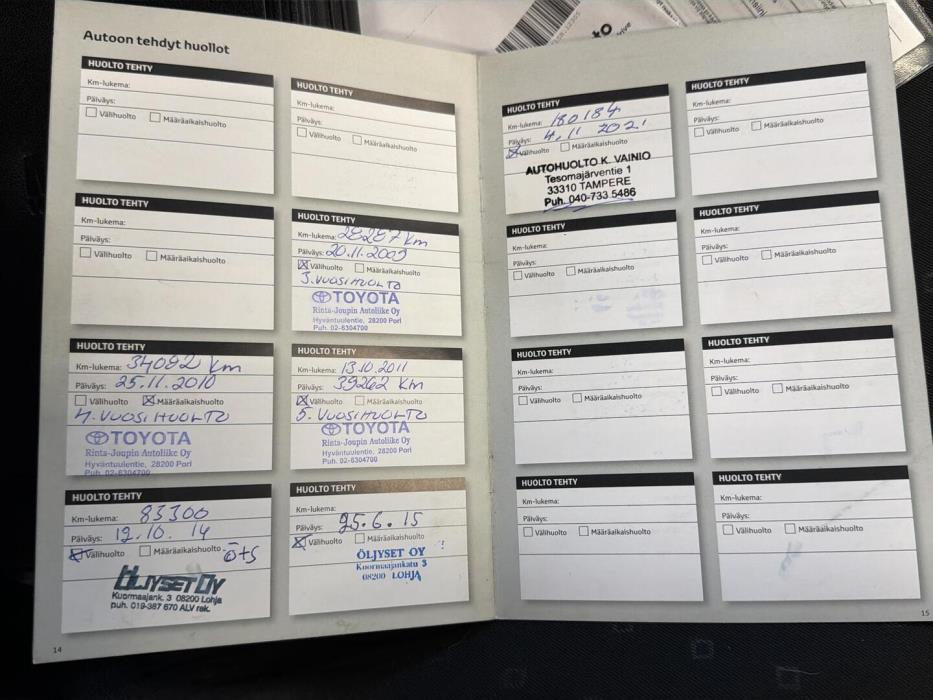 Autoon tehdyt huollot
HUOLTO TEHTY
Km-lukema:
Päiväys:
Välihuolto Määräaikaishuolto
HUOLTO TEHTY
Km-lukema:
Päiväys:
Välihuolto Määräaikaishuolto
HUOLTO TEHTY
Km-lukema:
Päiväys:
Välihuolto Määräaikaishuolto
HUOLTO TEHTY
Km-lukema: 28287 km
Päiväys: 20.11.2009
Välihuolto Määräaikaishuolto
3. VUOSIHUOLTO
TOYOTA
Rinta-Joupin Autoliike Oy
Hyväntuulentie, 28200 Pori
Puh. 02-6304700
HUOLTO TEHTY
Km-lukema: 34092 km
Päiväys: 25.11.2010
Välihuolto Määräaikaishuolto
4. VUOSIHUOLTO
TOYOTA
Rinta-Joupin Autoliike Oy
Hyväntuulentie, 28200 Pori
Puh. 02-6304700
HUOLTO TEHTY
Km-lukema: 13.10.2011
Päiväys: 39262 km
Välihuolto Määräaikaishuolto
5. VUOSIHUOLTO
TOYOTA
Rinta-Joupin Autoliike Oy
Hyväntuulentie, 28200 Pori
Puh. 02-6304700
HUOLTO TEHTY
Km-lukema: 83300
Päiväys: 12.10. 14
Välihuolto Määräaikaishuolto ö+s
ÖLJYSET OY
Kuormaajank. 3 08200 Lohja
puh. 019-387 670 ALV rek.
HUOLTO TEHTY
Km-lukema:
Päiväys: 25.6.15
Välihuolto Määräaikaishuolto
ÖLJYSET OY
Kuormaajankatu 3
08200 LOHJA
14
HUOLTO TEHTY
Km-lukema: 180184
Päiväys: 4.11 2021
Välihuolto Määräaikaishuolto
AUTOHUOLTO K. VAINIO
Tesomajärventie 1
33310 TAMPERE
Puh. 040-733 5486
HUOLTO TEHTY
Km-lukema:
Päiväys:
Välihuolto Määräaikaishuolto
HUOLTO TEHTY
Km-lukema:
Päiväys:
Välihuolto Määräaikaishuolto
HUOLTO TEHTY
Km-lukema:
Päiväys:
Välihuolto Määräaikaishuolto
HUOLTO TEHTY
Km-lukema:
Päiväys:
Välihuolto Määräaikaishuolto
HUOLTO TEHTY
Km-lukema:
Päiväys:
Välihuolto Määräaikaishuolto
HUOLTO TEHTY
Km-lukema:
Päiväys:
Välihuolto Määräaikaishuolto
HUOLTO TEHTY
Km-lukema:
Päiväys:
Välihuolto Määräaikaishuolto
15